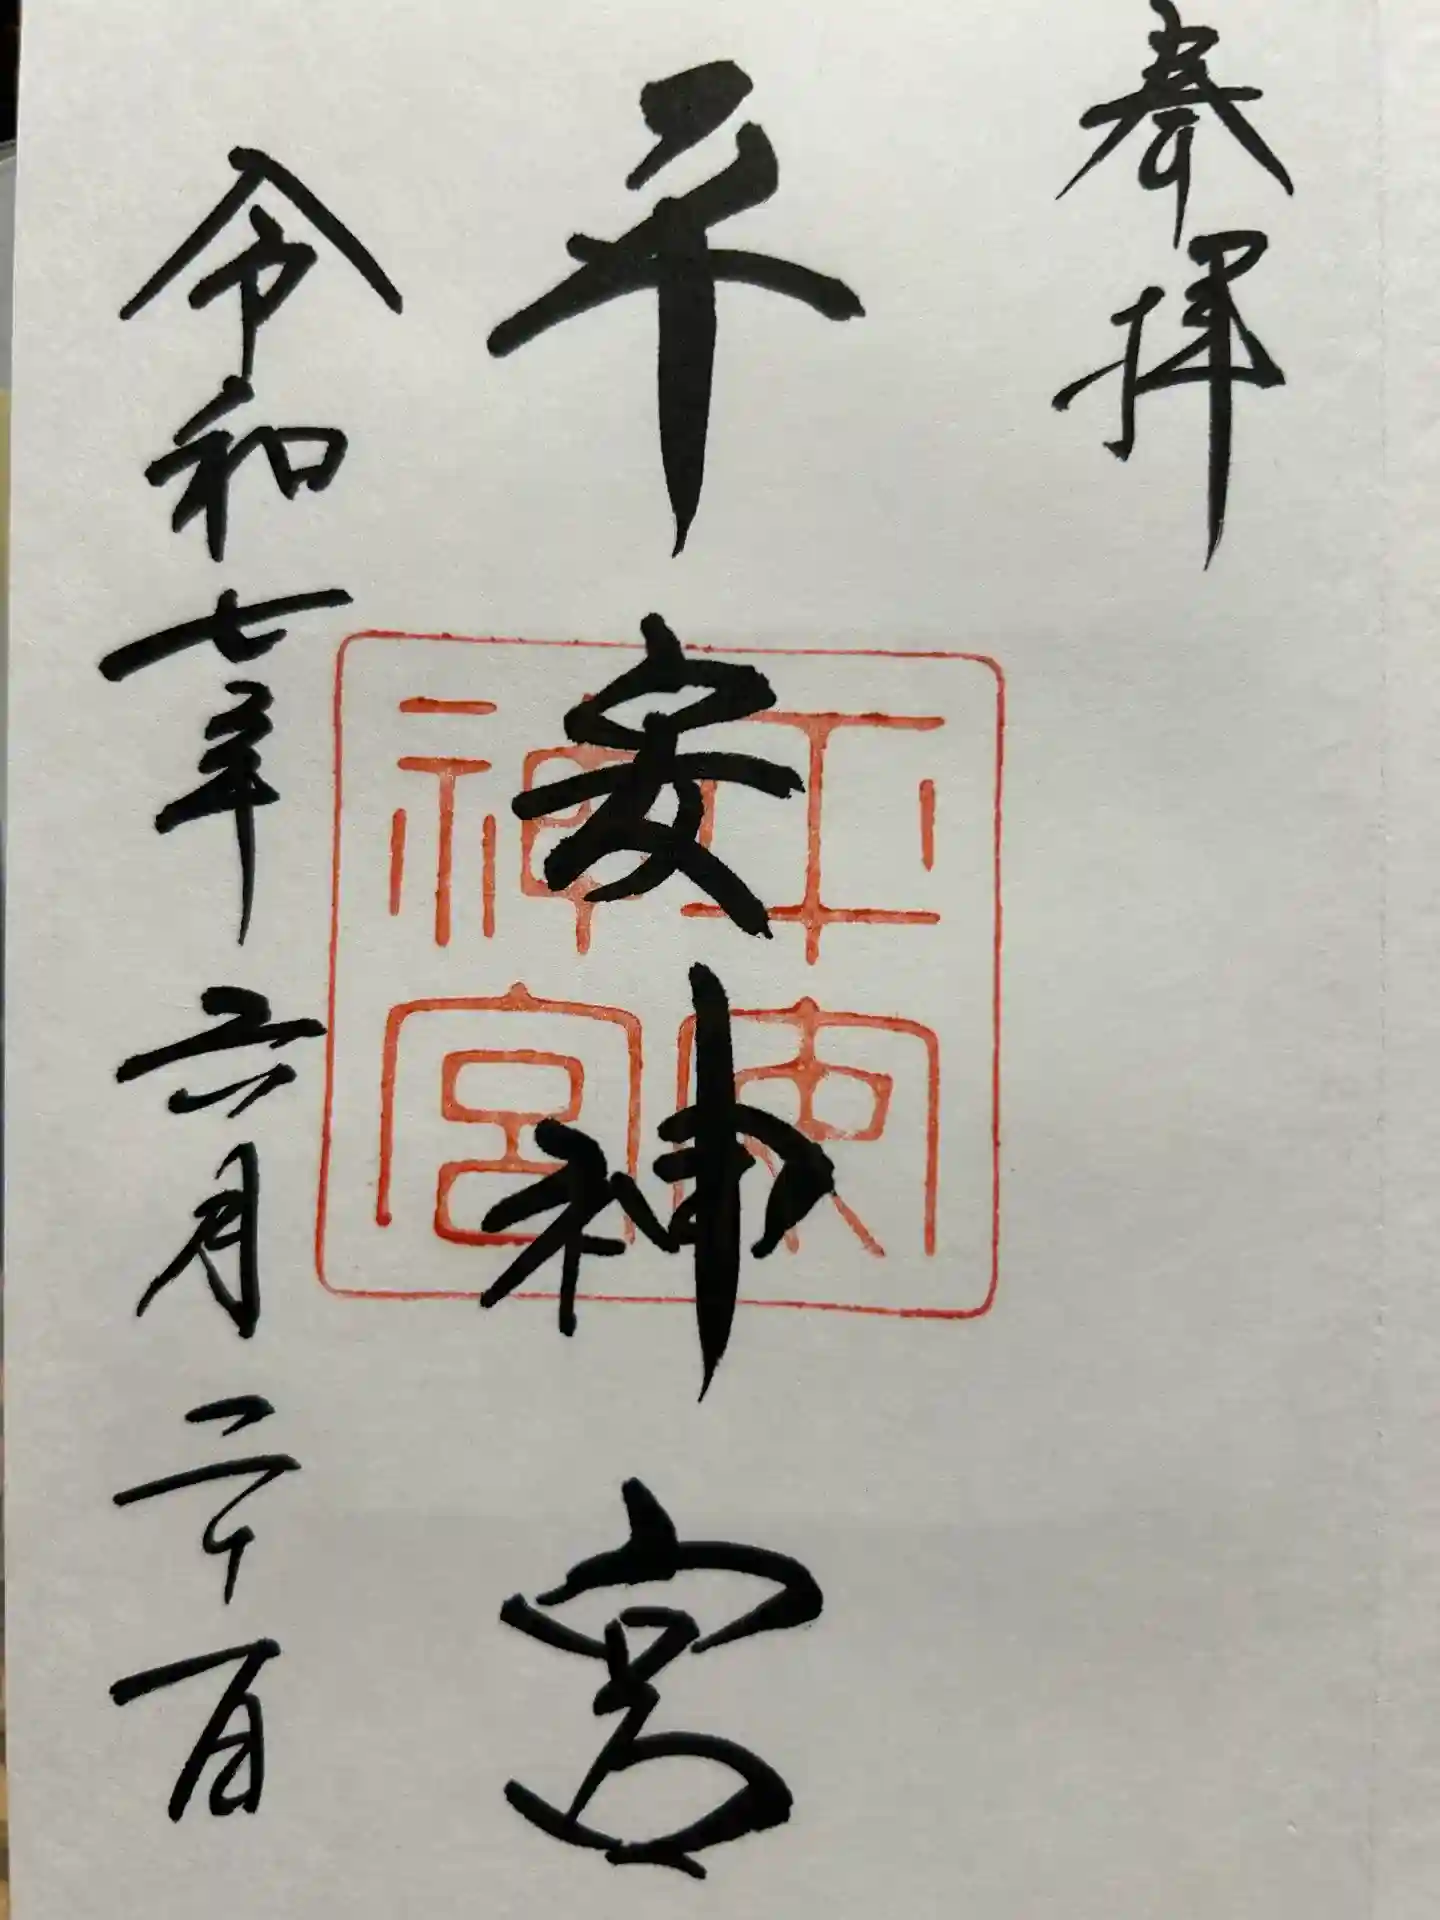 奉拝
平安神宮
令和七年六月二十一日
平安神宮